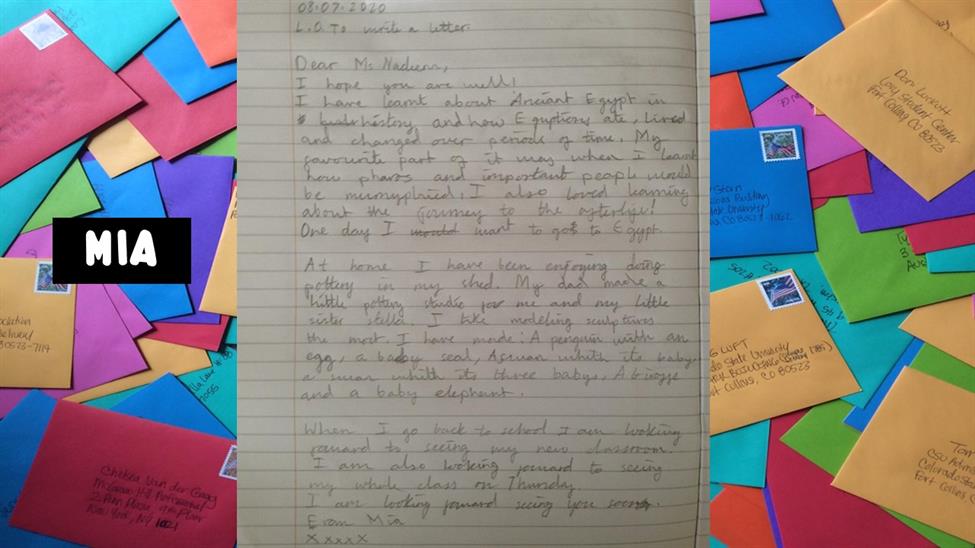 08.07.2020
L.O. To write a letter.
Dear Ms
I hope you are well!
I have learnt about Anciant Egypt in
history and how Egyptions ate, lived
and changed over periods of time. My
favourite part of it way when I learnt
how pharos and important people would
be I also loved learning
about the journey to the afterlife!
One day I want to go to Egypt.
At home I have been enjoying doing
pottery in my shed. My dad made a
little pottery studio for me and my little
sister stella. I like modeling sculptures
the most. I have made: A penguin with an
egg, a baby seal, A swan whith its baby,
a swan whith its three babys, A
and a baby elephant.
When I go back to school I am looking
forward to seeing my new classroom.
I am also looking forward to seeing
my whole class on Thursday.
I am looking forward seeing you soon.
From Mia
xxxxx
MIA
Don Luckett
Lory Student Center
Fort Collins CO 80523
Stan
Building
University
CO 80527-1062
LUFT
State University
Fort Collins, CO 80523
Tom
CSU
Colorado State
Fort Collins, CO
80523-7114
Chelsea Van der Gaag
McGraw-Hill Professional
2 Penn Plaza, 9th Floor
New York, NY